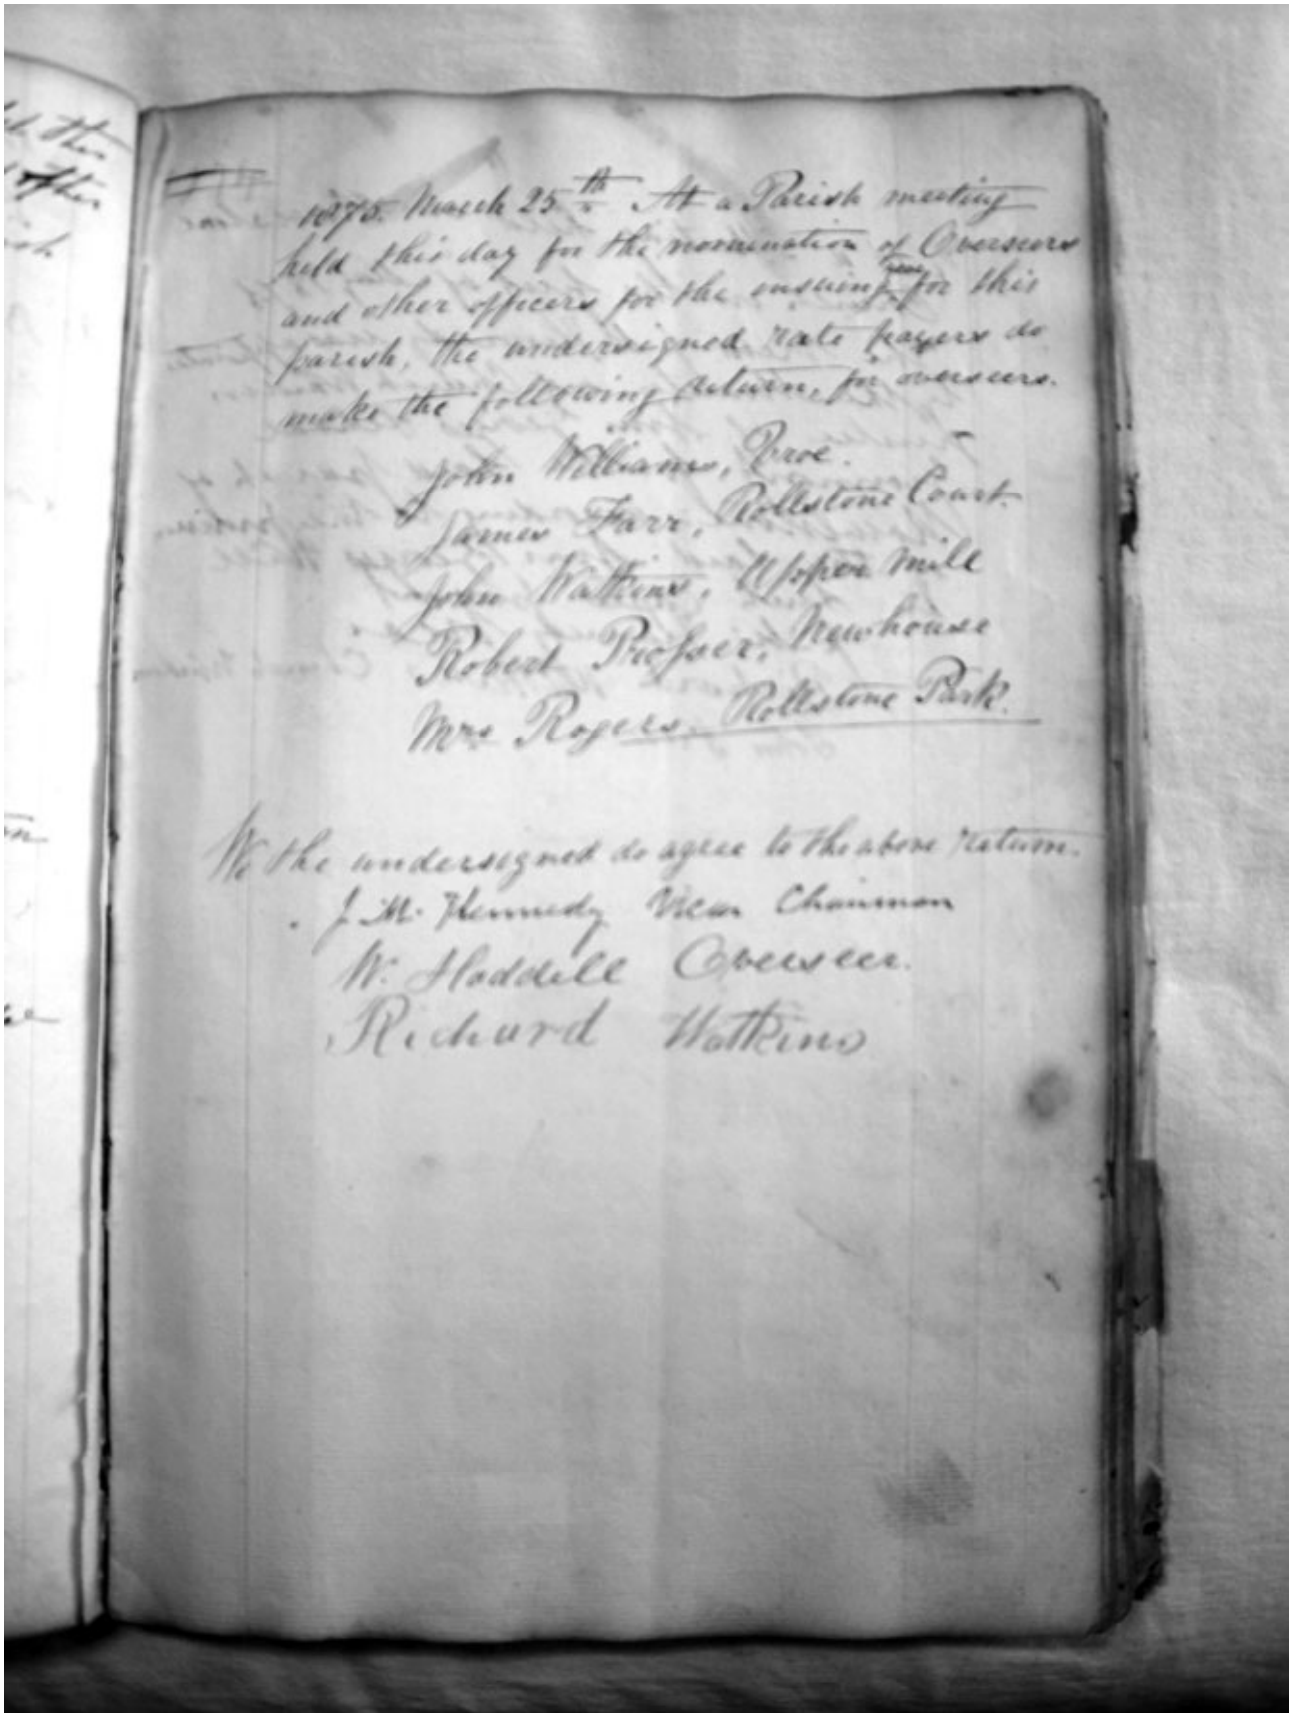 1875. March 25th At a Parish meeting
held this day for the nomination of Overseers
and other officers for the ensuing year for this
parish, the undersigned rate payers do
make the following return, for overseers.
John Williams, Broe.
James Farr, Rollstone Court.
John Watkins, Upper Mill
Robert Prosser, Newhouse
Mrs Rogers, Rollstone Park.
We the undersigned do agree to the above return.
J. M. Kennedy Vicar Chairman
W. Hoddell Overseer.
Richard Watkins